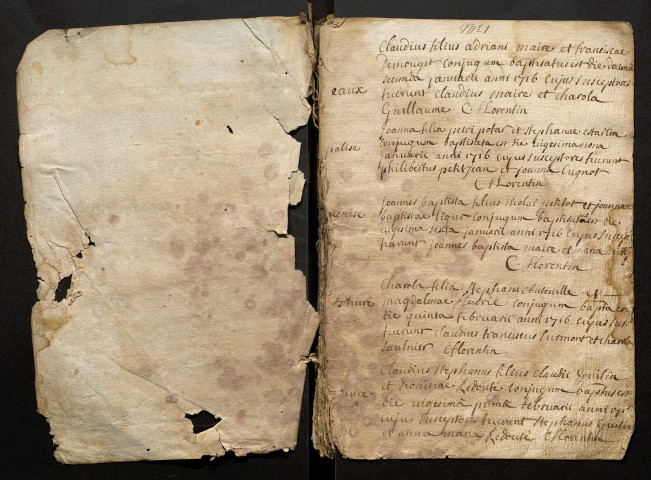 Claudius filius adriani maire et franciscae
Demouget conjugum baptisatus est die decima
secunda januarii anni 1716 cujus susceptores
eaux fuerunt claudius maire et charola
Guillaume C florentin
Joanna filia petri potar et stephanae
palise conjugum baptisata est die vigesima nona
januarii anni 1716 cujus susceptores fuerunt
philibertus petitjean et joanna Cugnot
C florentin
Joannes baptista filius nicolai petitot et joannae
baptistae conjugum baptisatus est die
vigesima sexta januarii anni 1716 cujus suscept
fuerunt joannes baptista maire et maria
C florentin
Charola filia stephani
magdalenae conjugum bapta est
die quinta februarii anni 1716 cujus sus
fuerunt claudius franciscus surmont et charola
saulnier C florentin
Claudius stephanus filius claudii Guilin
et dionisiae Redoute conjugum baptus est
die vigesima prima februarii anni 1716
cujus susceptores fuerunt stephanus Guilin
et anna maria Redouté C florentin